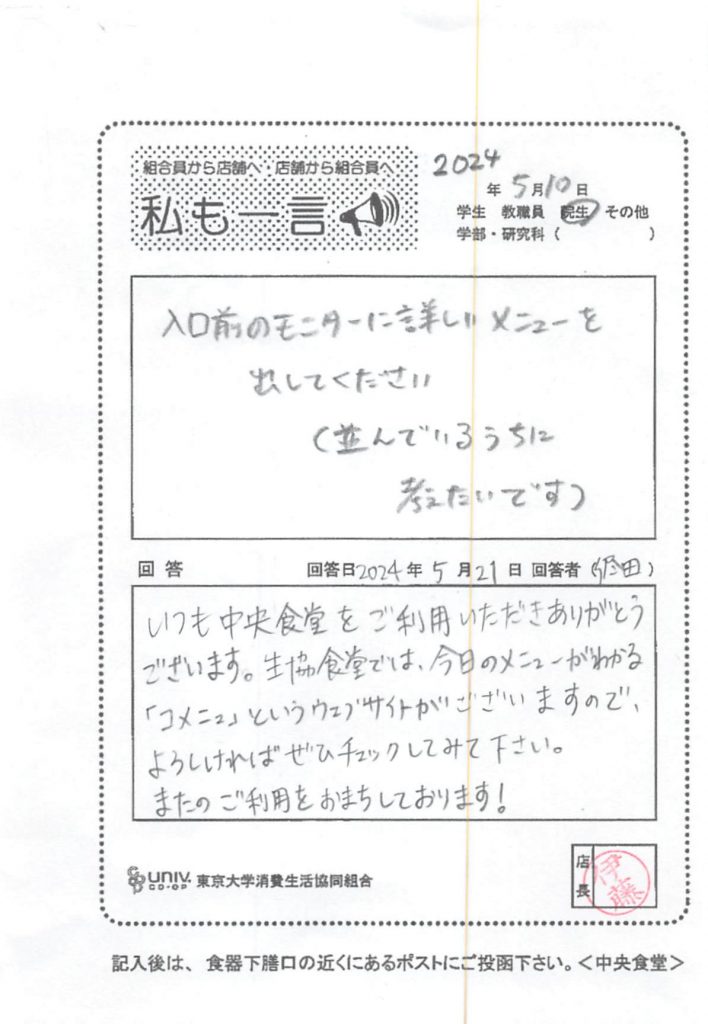 組合員から店舗へ・店舗から組合員へ
私も一言
2024
年 5月10日
学生 教職員 院生 その他
学部・研究科 ( )
入口前のモニターに詳しいメニューを
出してください
(並んでいるうちに
考えたいです)
回答 回答日2024年 5月21日 回答者( 田)
いつも中央食堂をご利用いただきありがとう
ございます。生協食堂では、今日のメニューがわかる
「コメニュ」というウェブサイトがございますので、
よろしければぜひチェックしてみて下さい。
またのご利用をおまちしております!
UNIV. CO-OP 東京大学消費生活協同組合
店長 伊藤
記入後は、食器下膳口の近くにあるポストにご投函下さい。<中央食堂>